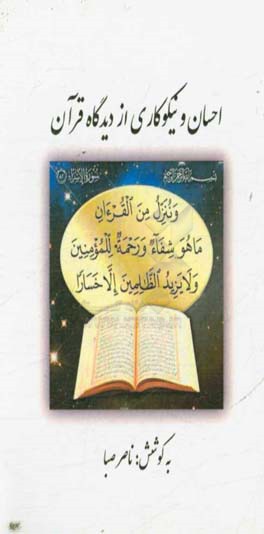 احسان و نیکوکاری از دیدگاه قرآن
سورة الإسراء
وَنُنَزِّلُ مِنَ الْقُرْءَانِ
مَا هُوَ شِفَآءٌ وَرَحْمَةٌ لِّلْمُؤْمِنِينَ
وَلَا يَزِيدُ الظَّٰلِمِينَ إِلَّا خَسَارًا
به کوشش: ناصر صبا